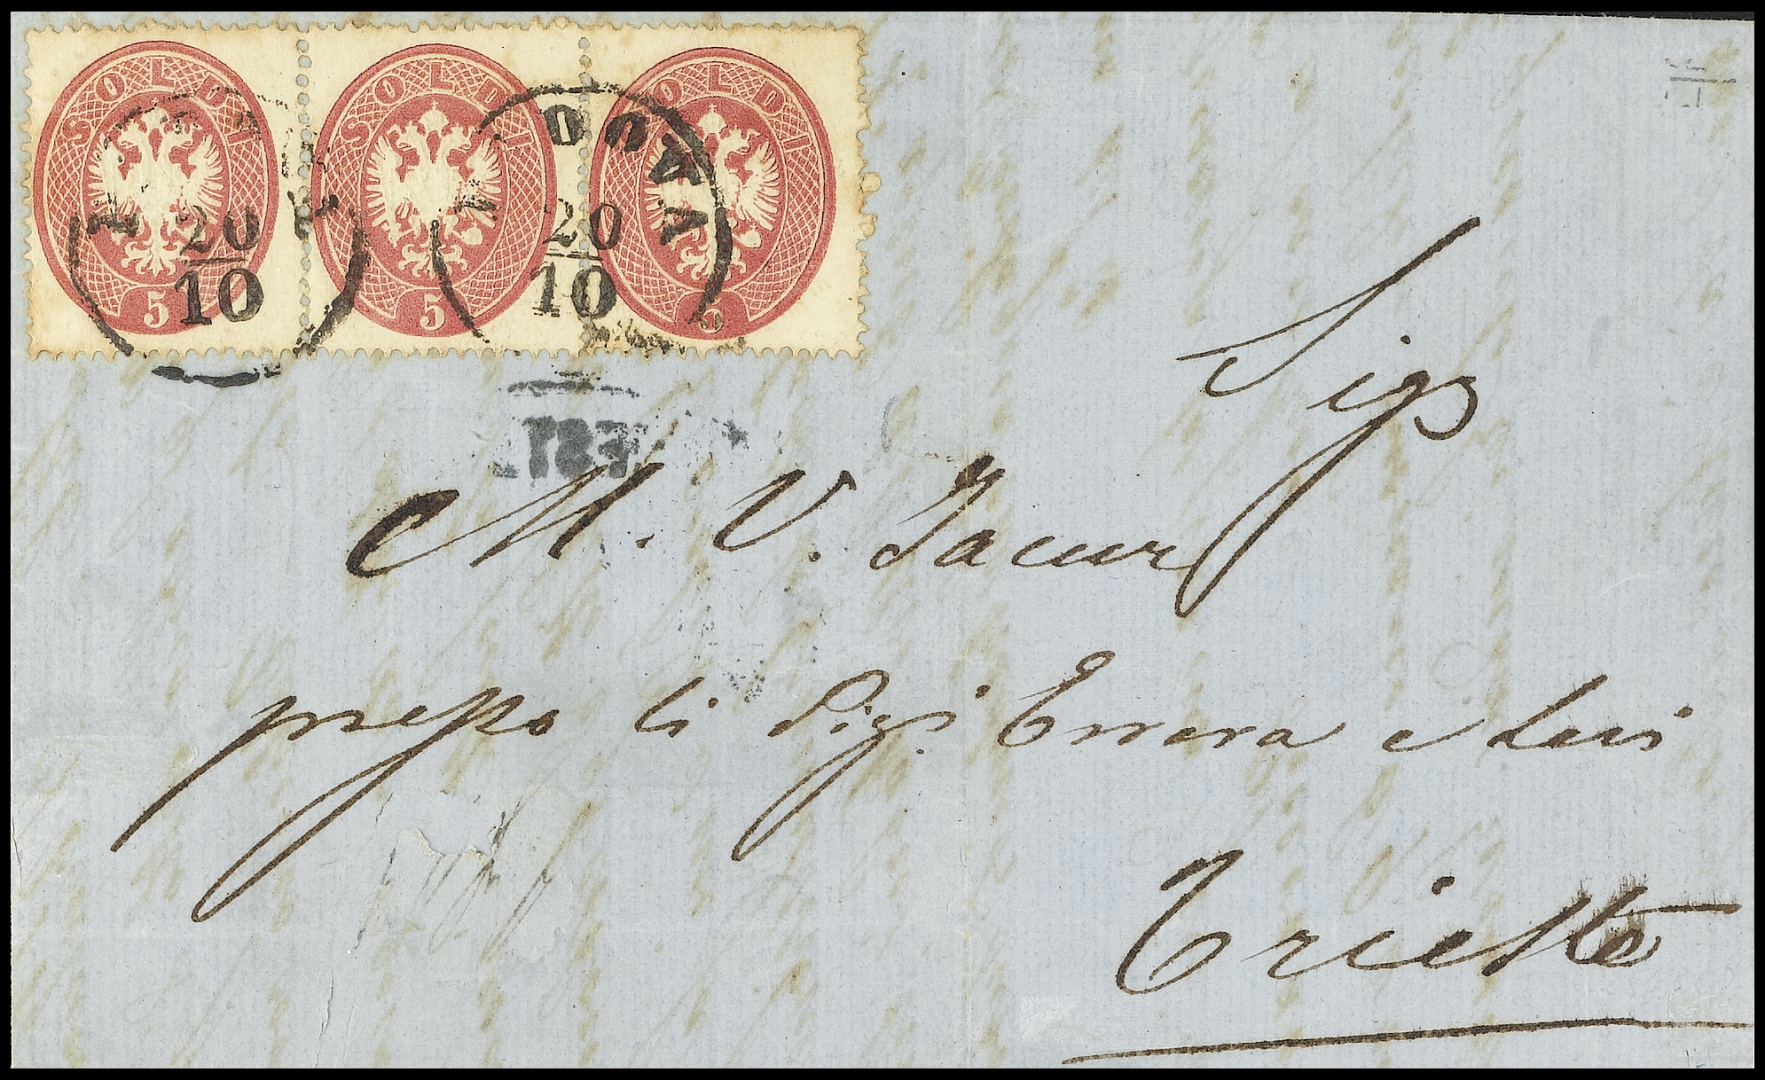 SOLDI SOLDI SOLDI
PADOVA
20 20
10 10
5 5 5
Sigr
M. V. Jacur
presso li Sigri Errera e Levi
Trieste